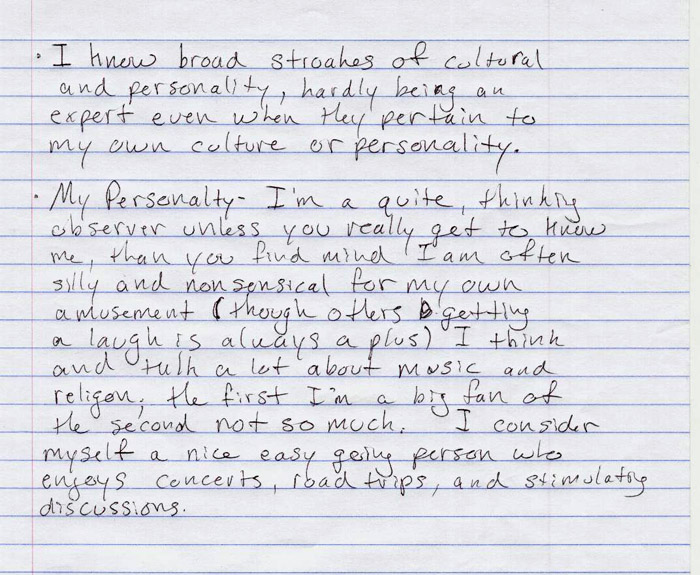 · I know broad stroahes of cultural
and personality, hardly being an
expert even when they pertain to
my own culture or personality.
· My Personalty - I'm a quite, thinking
observer unless you really get to know
me, than you find mind I am often
silly and nonsensical for my own
amusement (though others getting
a laugh is always a plus) I think
and talk a lot about music and
religon; the first I'm a big fan of
the second not so much. I consider
myself a nice easy going person who
enjoys concerts, road trips, and stimulating
discussions.